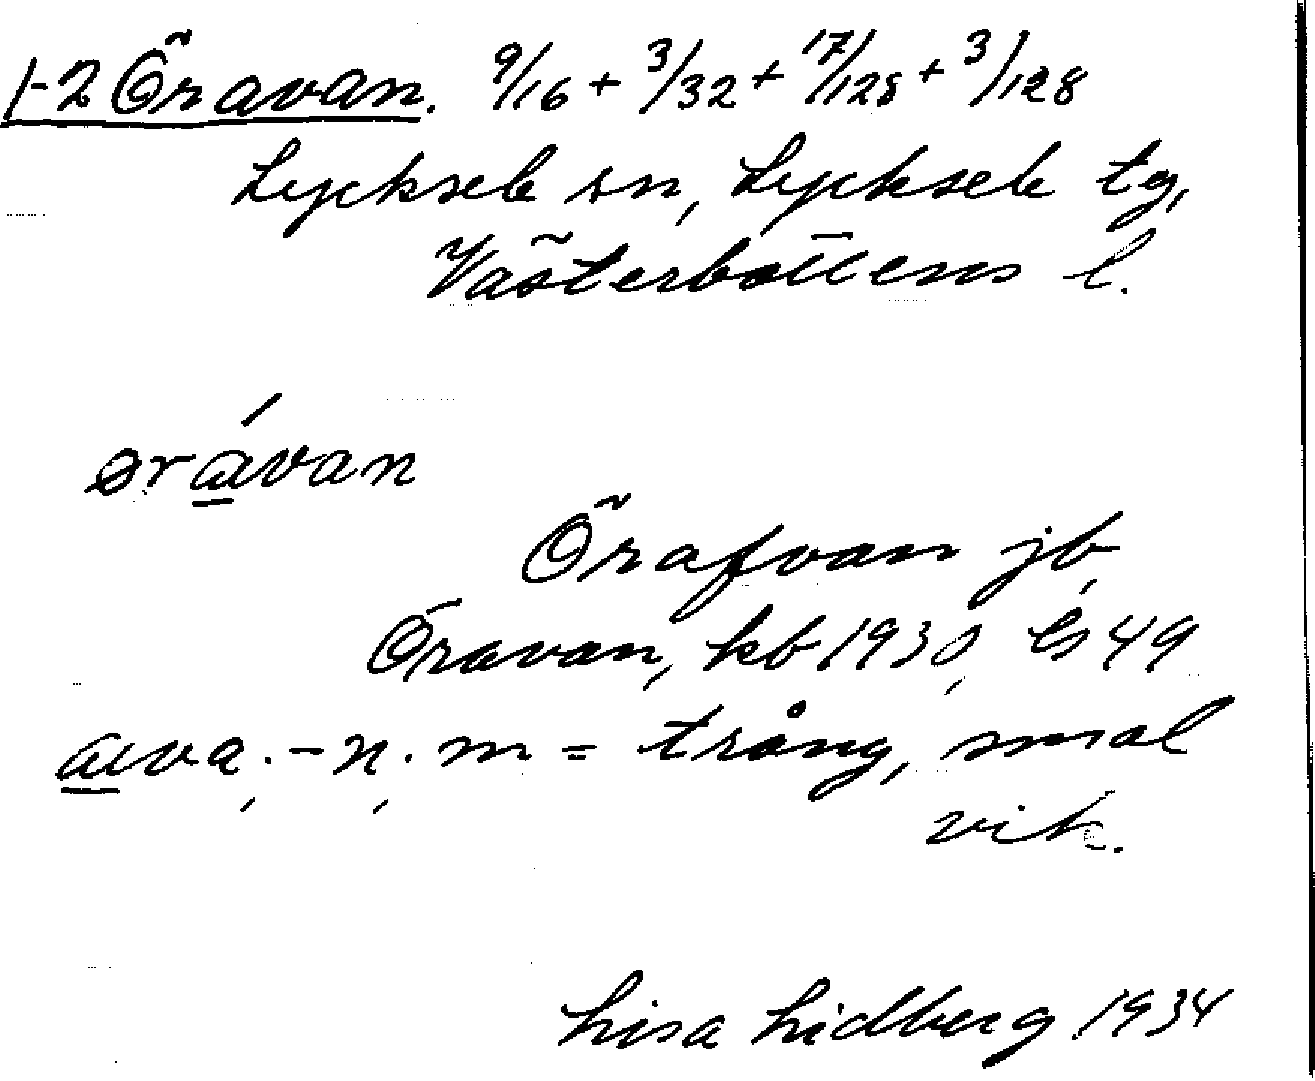 1-2 Öravan. 9/16 + 3/32 + 17/128 + 3/128
Lycksele sn, Lycksele tg,
Västerbottens l.
ørávan
Örafvan jb,
Öravan, kb 1930, GS 49
ava. -n. m = trång, smal
vik.
Lisa Lidberg 1934